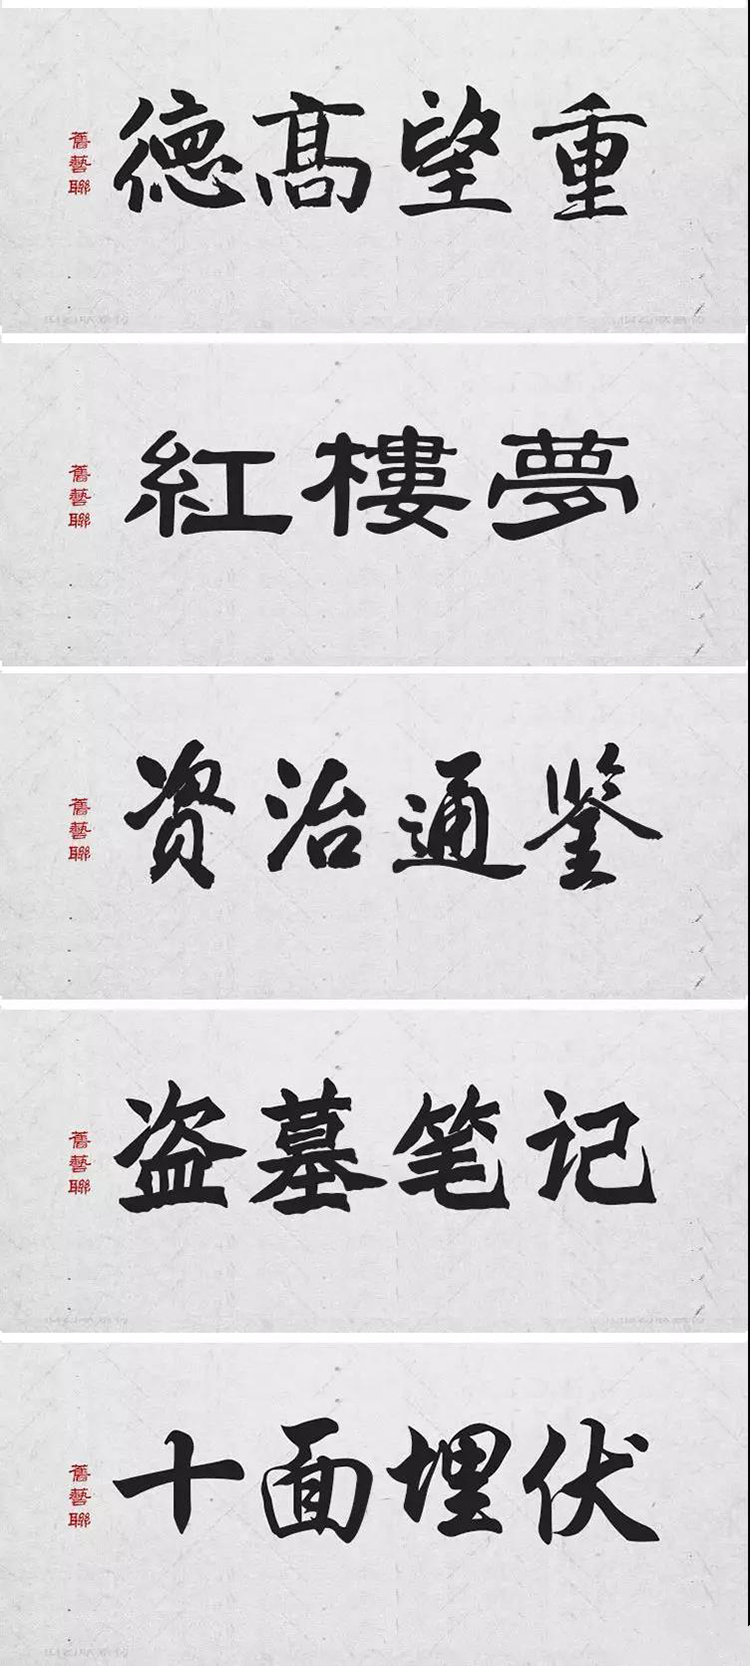 德髙望重
舊藝聯
紅樓夢
舊藝聯
资治通鉴
舊藝聯
盗墓笔记
舊藝聯
十面埋伏
舊藝聯